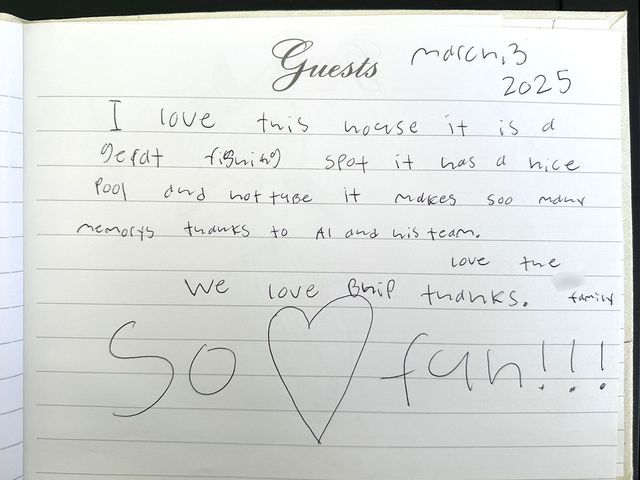 Guests march, 3
2025
I love this house it is a
gerat fishing spot it has a nice
Pool and hot tube it makes soo many
memorys thanks to Al and his team.
love the
We love BHIP thanks. family
So fun!!!